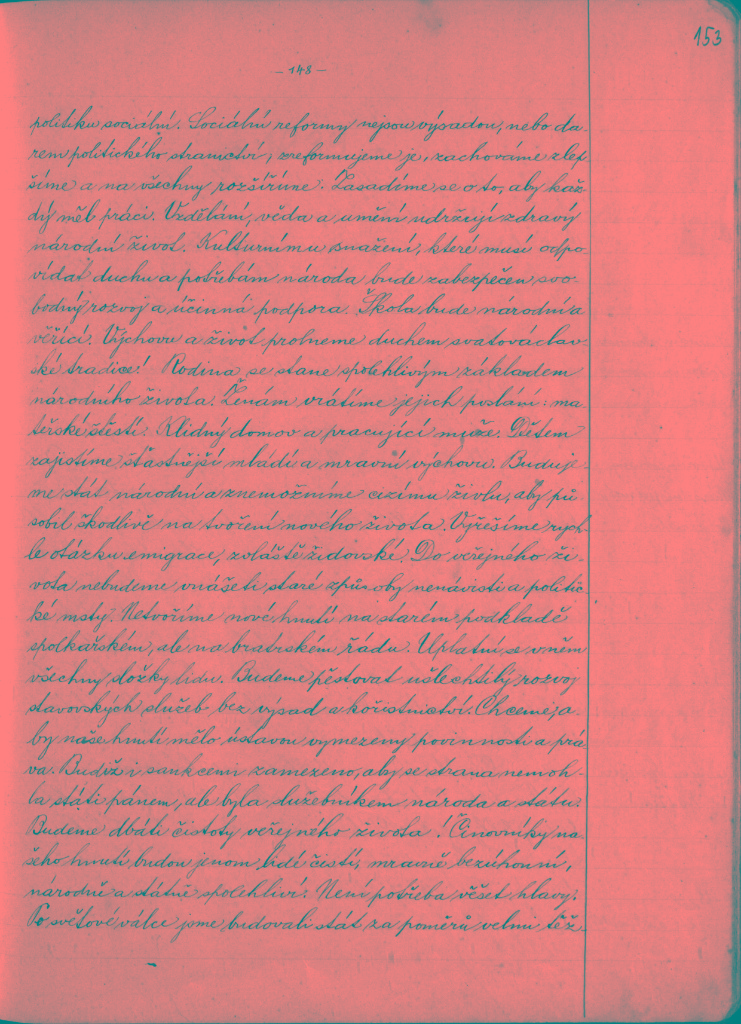 153
– 148 –
politiku sociální. Sociální reformy nejsou výsadou, nebo da-
rem politického stranictví, zreformujeme je, zachováme zlep
šíme a na všechny rozšíříme. Zasadíme se o to, aby kaž-
dý měl práci. Vzdělání, věda a umění udržují zdravý
národní život. Kulturnímu snažení, které musí odpo-
vídat duchu a potřebám národa bude zabezpečen svo-
bodný rozvoj a účinná podpora. Škola bude národní a
věřící. Výchovu a život prolneme duchem svatováclav-
ské tradice! Rodina se stane spolehlivým základem
národního života. Ženám vrátíme jejich poslání: ma-
teřské štěstí. Klidný domov a pracující muže. Dětem
zajistíme šťastnější mládí a mravní výchovu. Buduje-
me stát národní a znemožníme cizímu živlu, aby pů-
sobil škodlivě na tvoření nového života. Vyřešíme rych-
le otázku emigrace, zvláště židovské. Do veřejného ži-
vota nebudeme vnášeti staré způsoby nenávisti a politic-
ké msty. Netvoříme nové hnutí na starém podkladě
spolkařském, ale na bratrském řádu. Uplatní se v něm
všechny složky lidu. Budeme pěstovat ušlechtilý rozvoj
stavovských služeb bez výsad a kořistnictví. Chceme, a-
by naše hnutí mělo ústavou vymezeny povinnosti a prá-
va. Budiž i sankcemi zamezeno, aby se strana nemoh-
la státi pánem, ale byla služebníkem národa a státu.
Budeme dbáti čistoty veřejného života! Činovníky na-
šeho hnutí budou jenom lidé čistí, mravně bezúhonní,
národně a státně spolehliví. Není potřeba věšet hlavy.
Po světové válce jsme budovali stát za poměrů velmi těž-